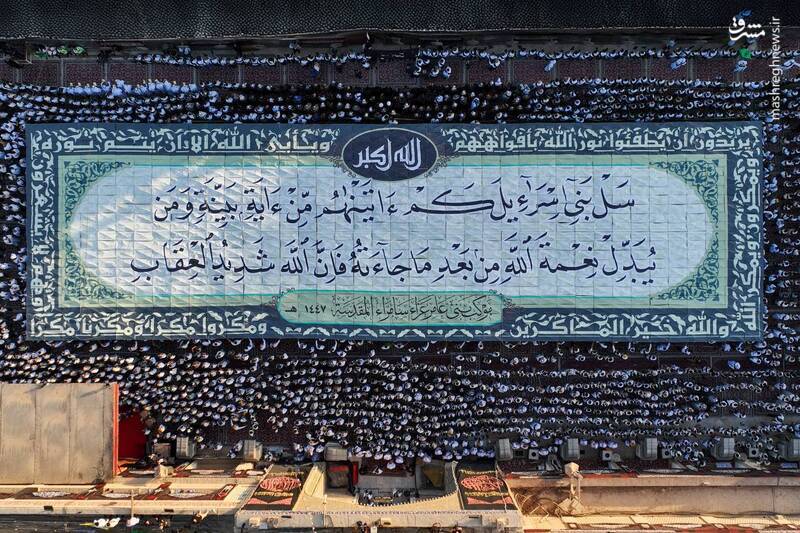 مشرق
mashreghnews.ir
يريدون ان يطفئوا نور الله بافواههم ويأبى الله الا ان يتم نوره
الله اكبر
سَلْ بَنِىٓ إِسْرَٰٓءِيلَ كَمْ ءَاتَيْنَٰهُم مِّنْ ءَايَةٍۭ بَيِّنَةٍ وَمَن
يُبَدِّلْ نِعْمَةَ ٱللَّهِ مِنۢ بَعْدِ مَا جَآءَتْهُ فَإِنَّ ٱللَّهَ شَدِيدُ ٱلْعِقَابِ
موكب بني عامر عزاء سامراء المقدسة ١٤٤٧ هـ
ويمكرون ويمكر الله
والله خير الماكرين ومكروا مكرا ومكرنا مكرا